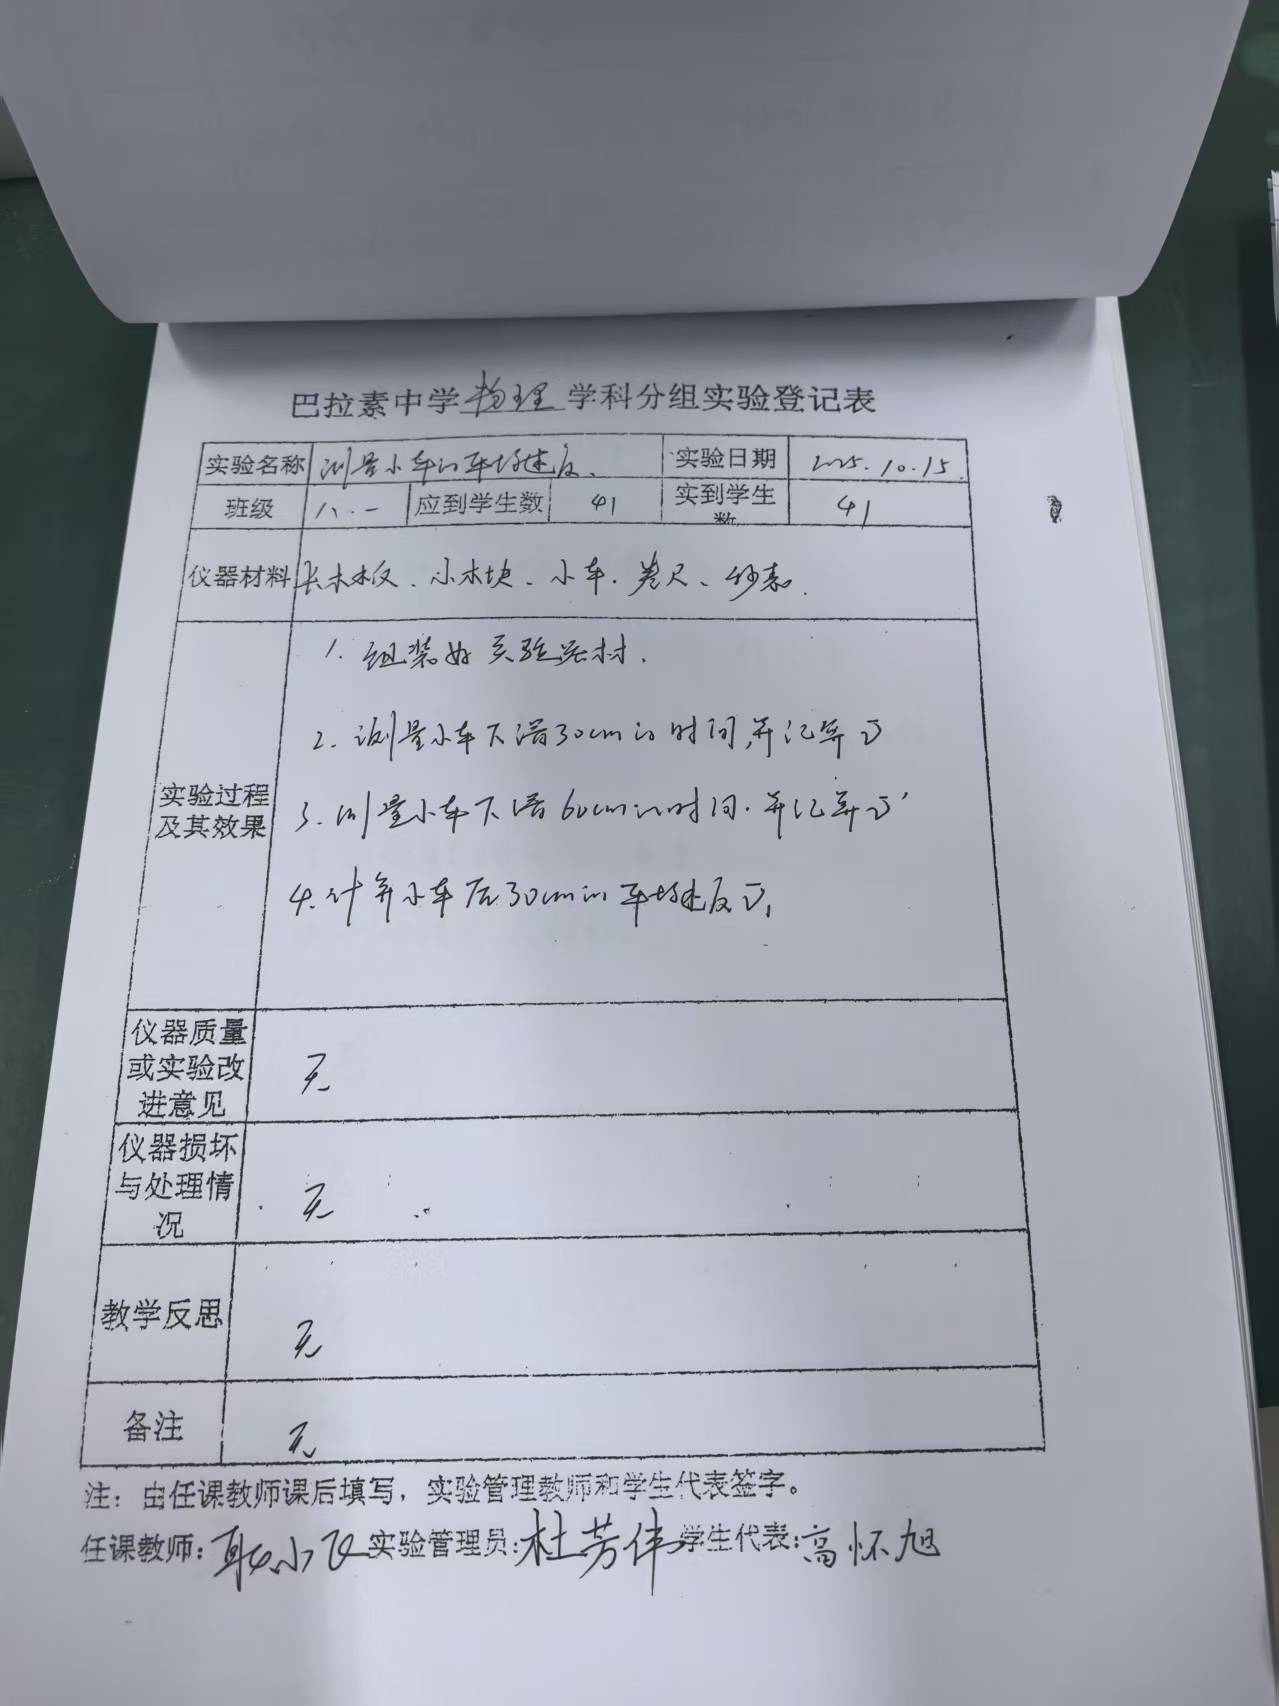 巴拉素中学物理学科分组实验登记表
实验名称 测量小车的平均速度. 实验日期 2025.10.15.
班级 八.一 应到学生数 41 实到学生数 41
仪器材料 长木板、小木块、小车.卷尺、秒表.
1. 组装好实验器材.
2. 测量小车下滑30cm的时间,并记算v
实验过程
3. 测量小车下滑60cm的时间.并记算v
及其效果
4. 计算小车后30cm的平均速度v,
仪器质量
或实验改
进意见
无
仪器损坏
与处理情
况
无
教学反思
无
备注
无
注：由任课教师课后填写，实验管理教师和学生代表签字。
任课教师: 耿小飞 实验管理员: 杜芳伟 学生代表: 高怀旭